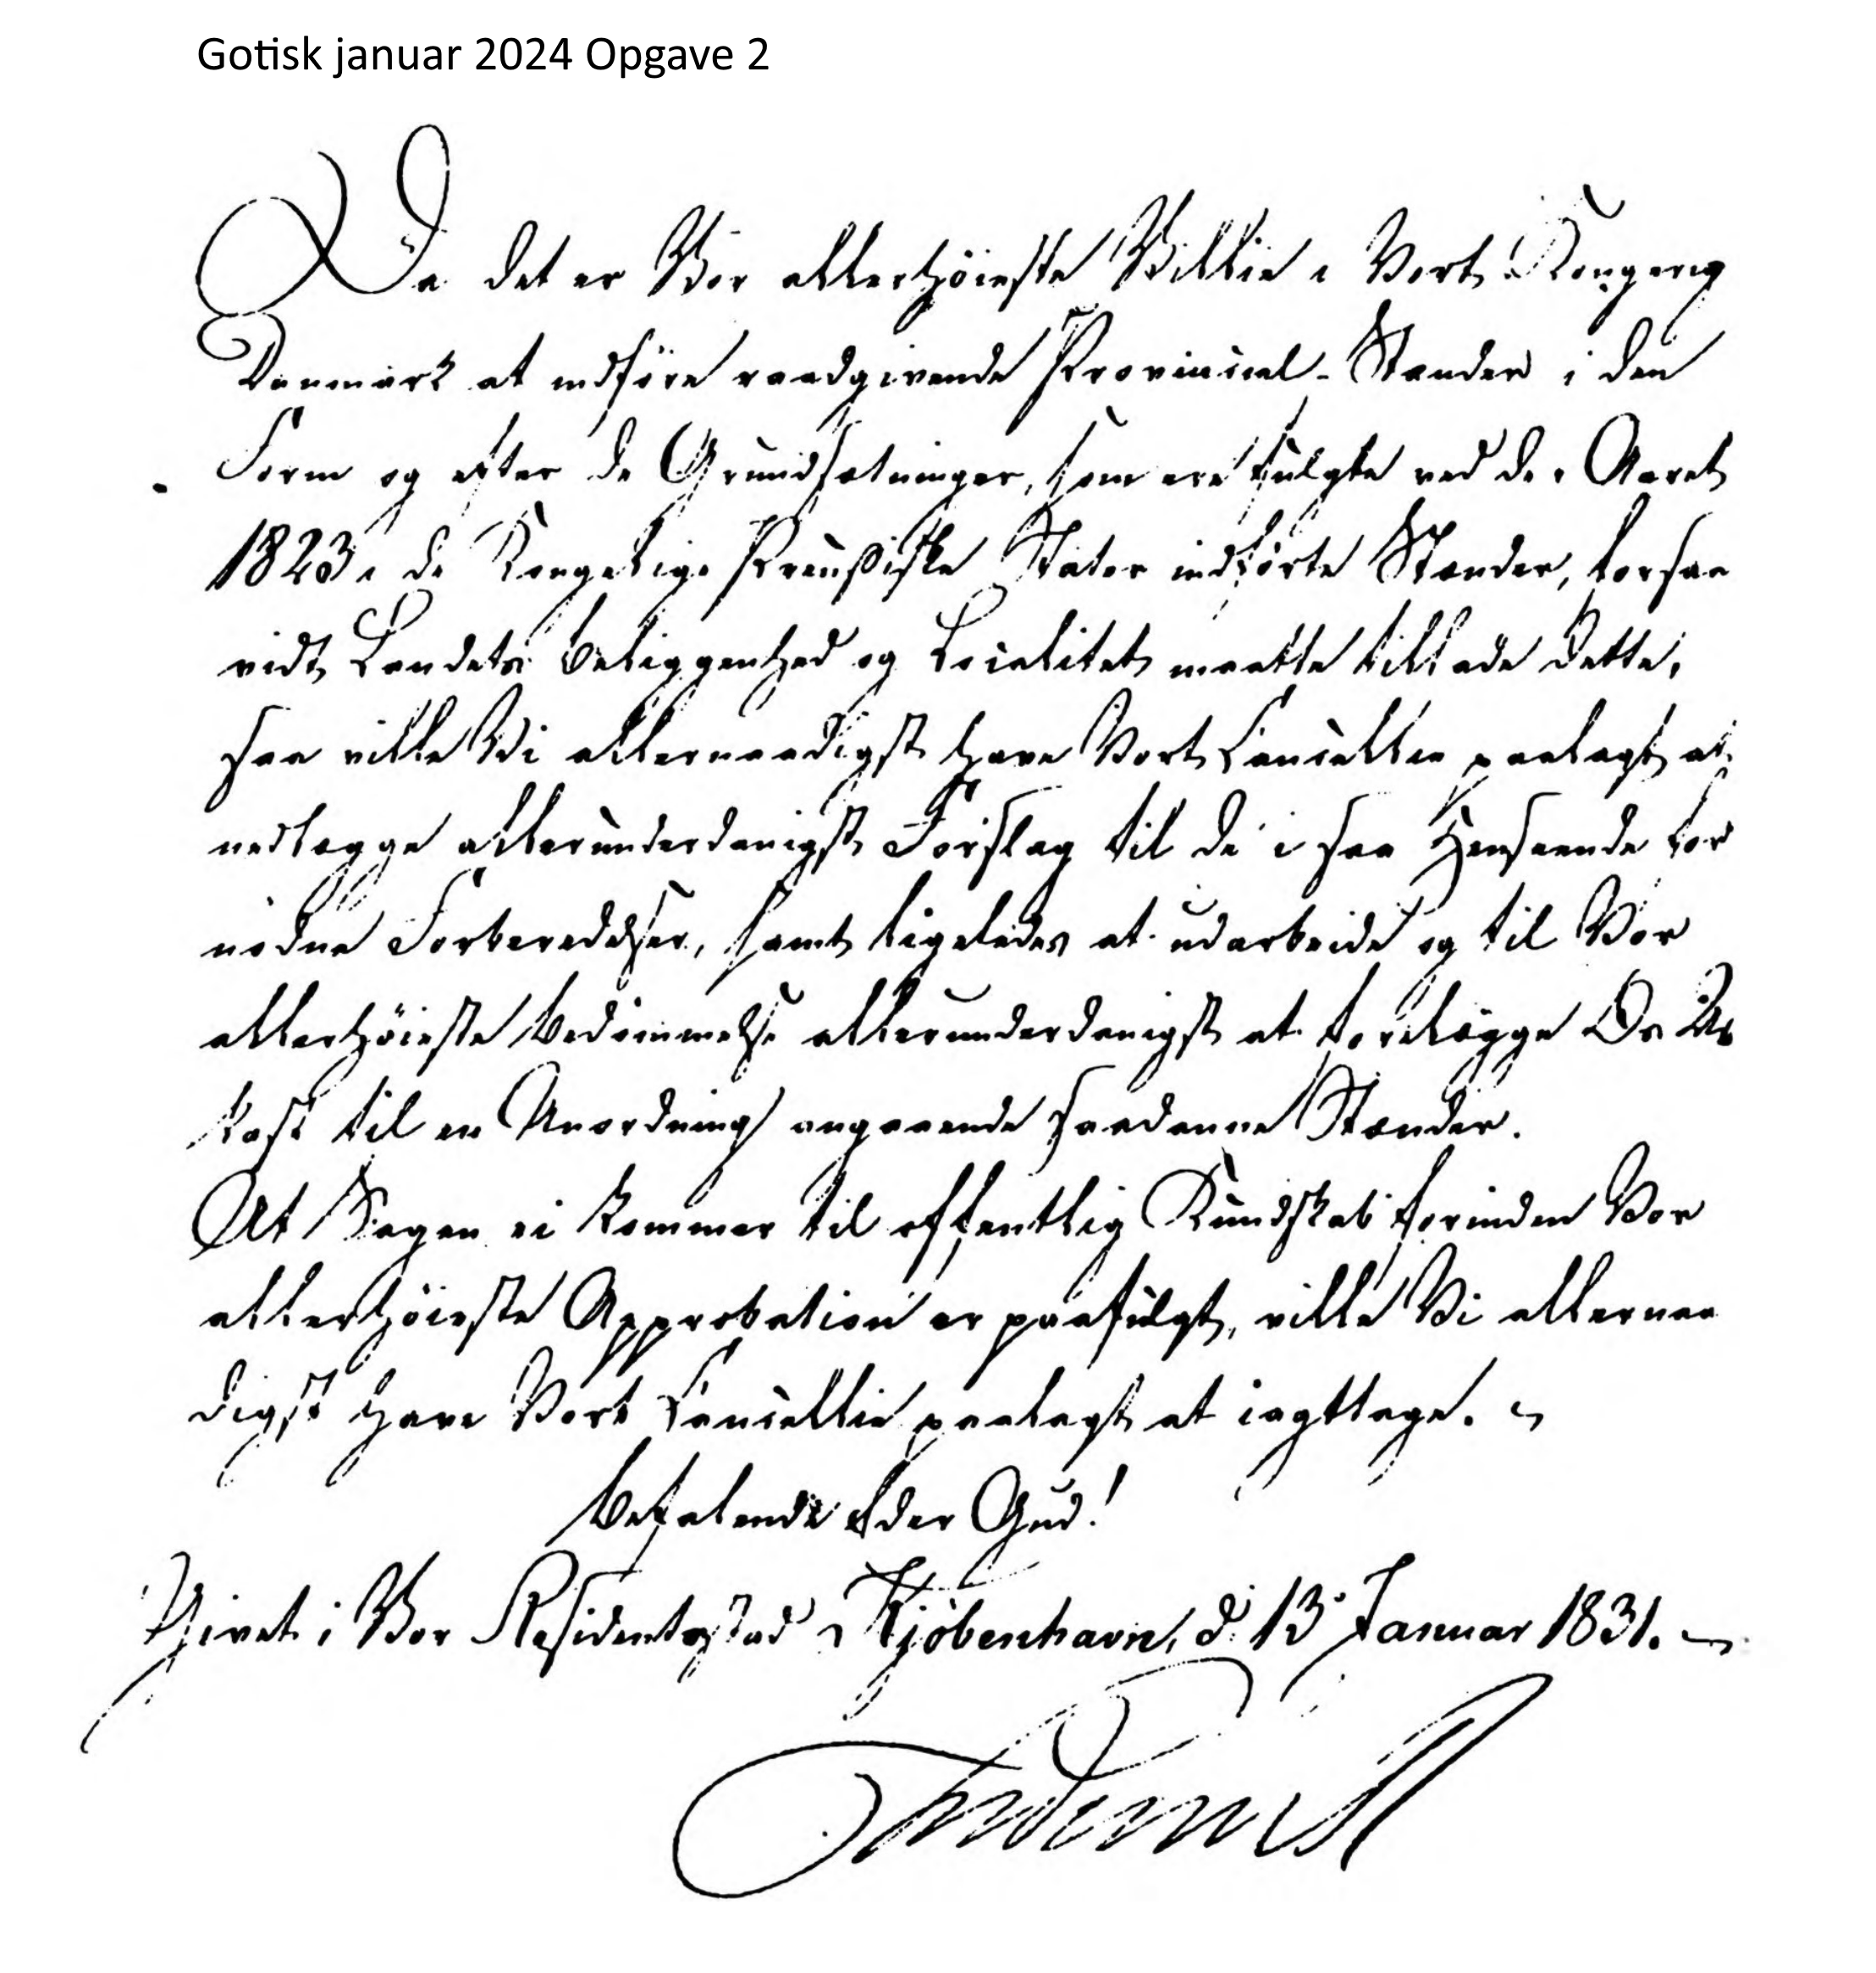 Gotisk januar 2024 Opgave 2
Da det er Vor allerhöieste Villie i Vort Kongerig
Danmark at indföre raadgivende Provincial-Stænder i den
Form og efter de Grundsætninger, som ere fulgte ved de i Aaret
1823 i de Kongelige Preussiske Stater indförte Stænder, forsaa
vidt Landets Beliggenhed og Localitet maatte tillade dette,
saa ville Vi allernaadigst have Vort Cancellie paalagt at
nedlægge allerunderdanigst Forslag til de i saa Henseende for
nödne Forberedelser, samt ligeledes at udarbeide og til Vor
allerhöieste Bedömmelse allerunderdanigst at forelægge Os Ud
kast til en Anordning angaaende saadanne Stænder.
At Sagen ei kommer til offentlig Kundskab forinden Vor
allerhöieste Approbation er paafulgt, ville Vi allernaa
digst have Vort Cancellie paalagt at iagttage.
Befalende Eder Gud!
Givet i Vor Residentsstad Kjöbenhavn, d. 13 Januar 1831.
Frederik R